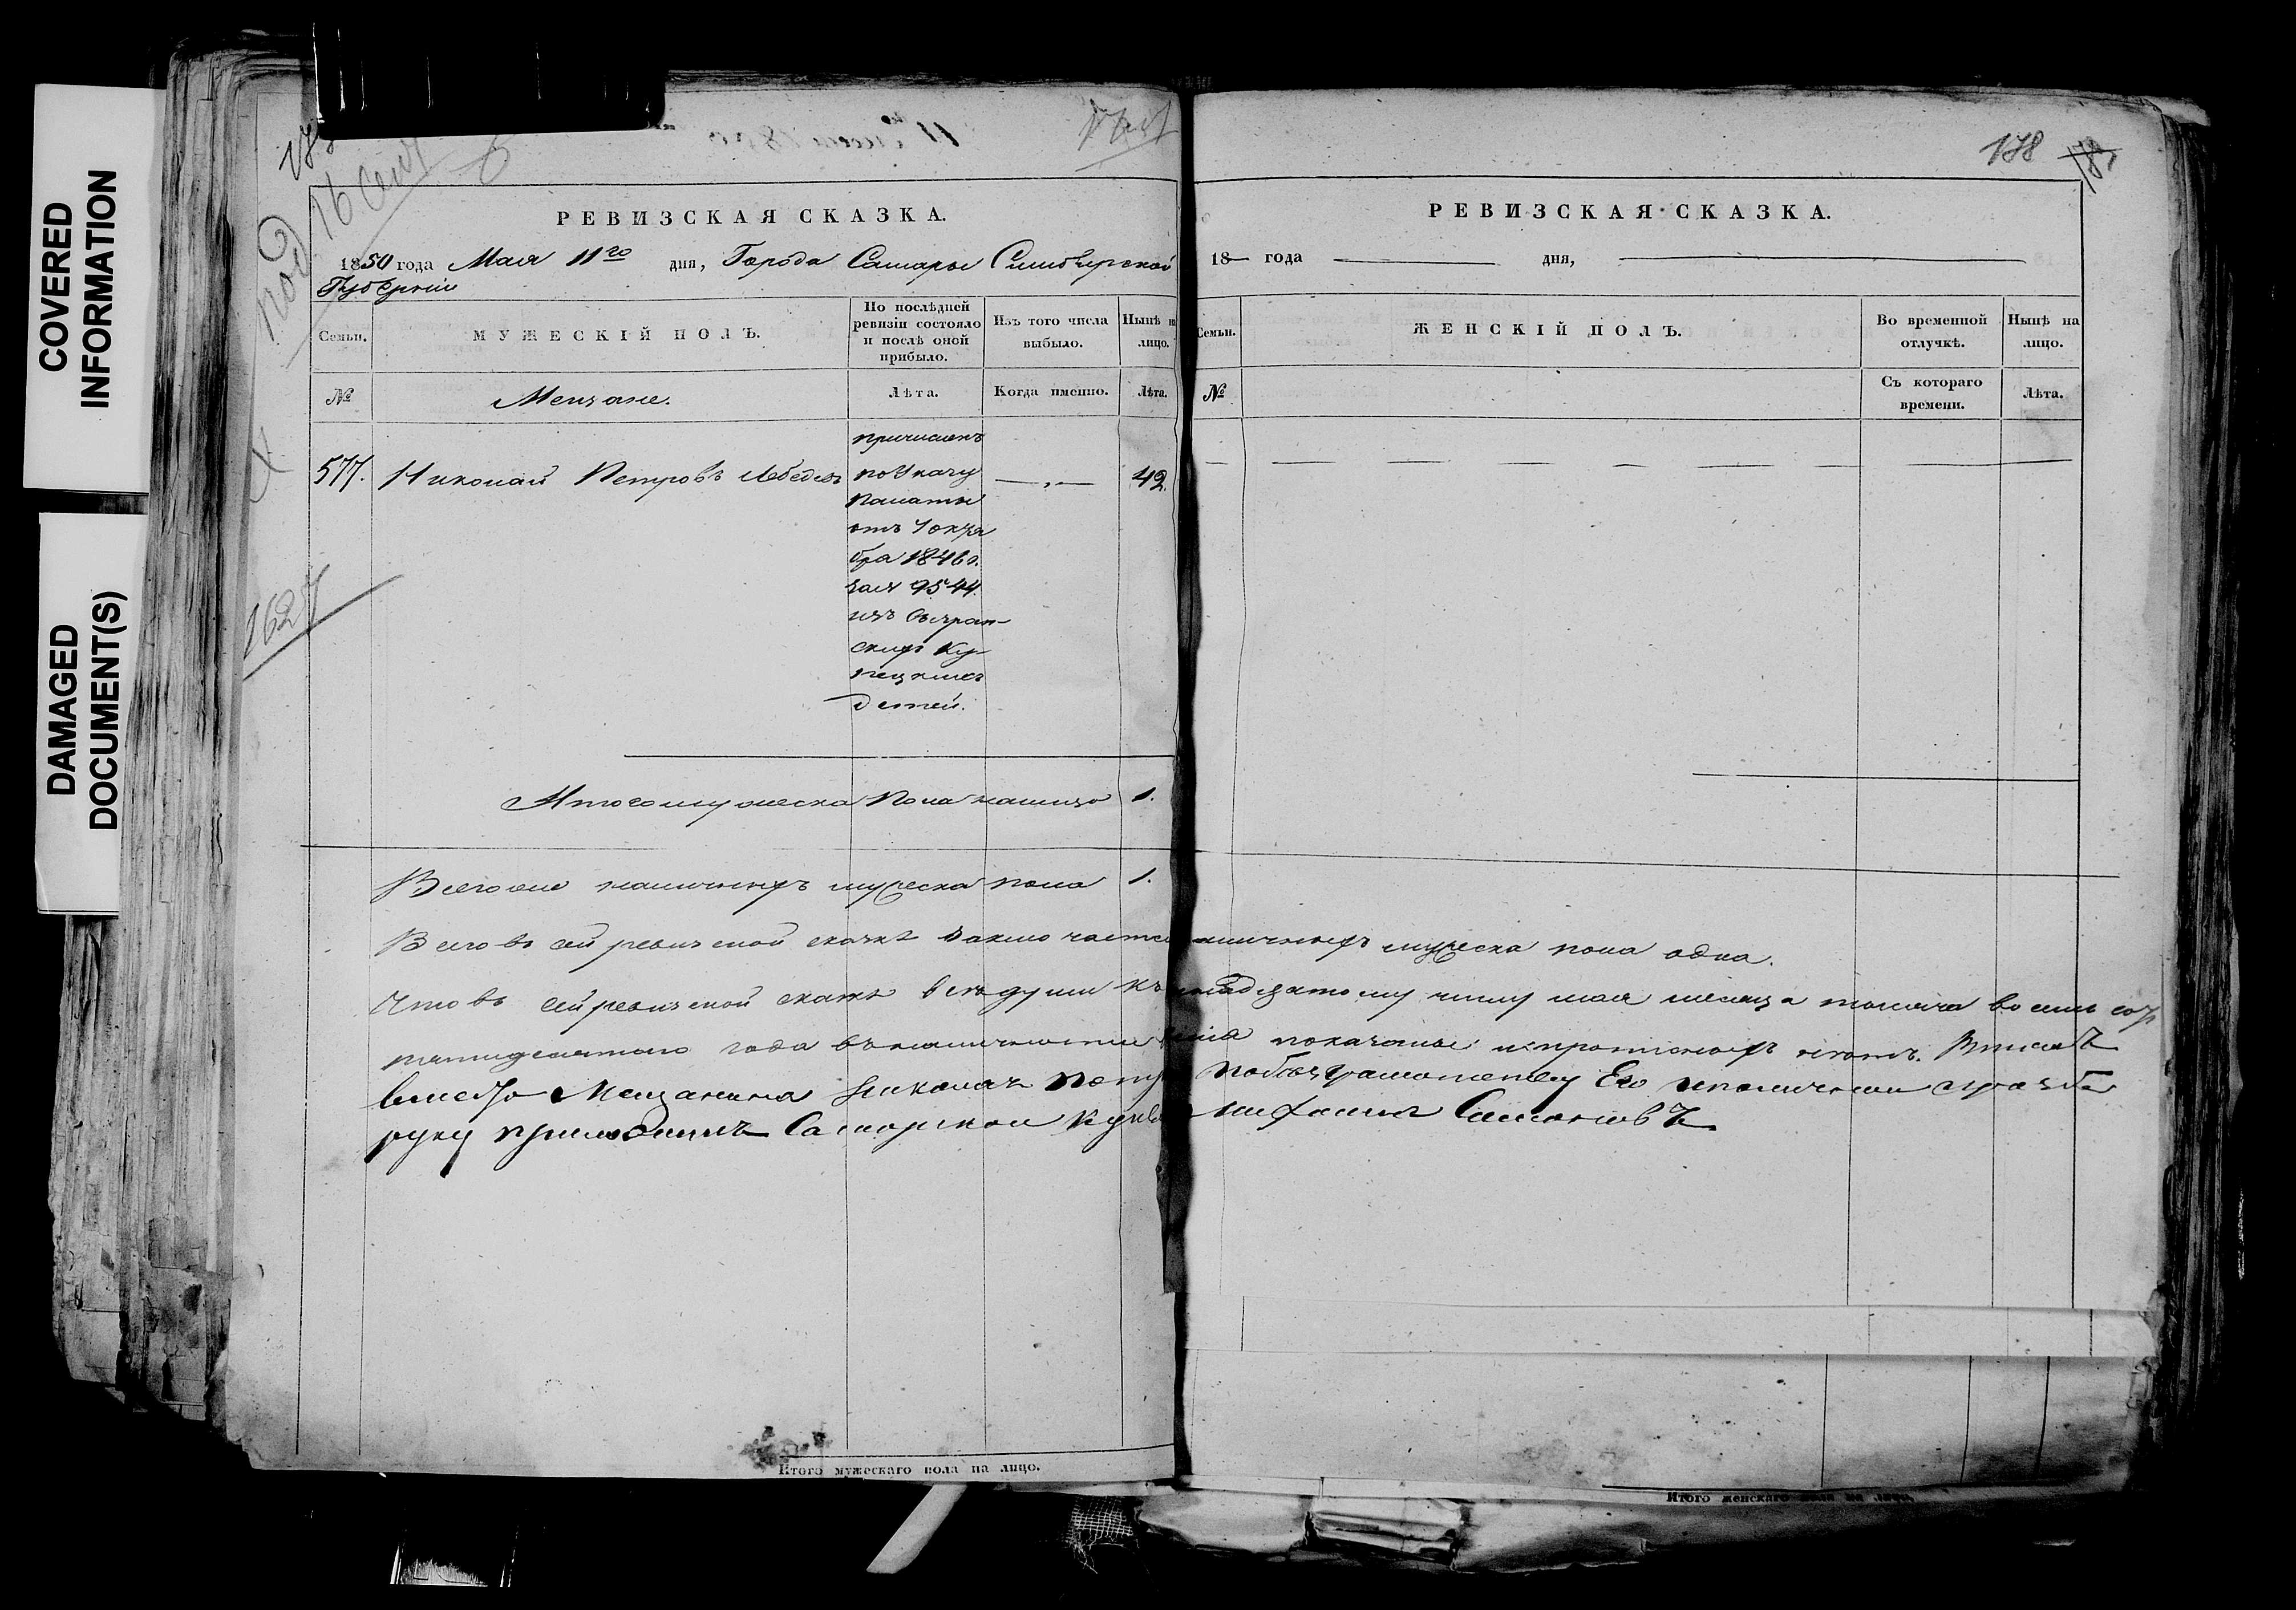 COVERED
INFORMATION
DAMAGED
DOCUMENT(S)
под 16
1627
РЕВИЗСКАЯ СКАЗКА.
1850 года Мая 11го дня, Города Самары Симбирской
Губерніи
Семьи.
МУЖЕСКІЙ ПОЛЪ.
По послѣдней
ревизіи состояло
и послѣ оной
прибыло.
Изъ того числа
выбыло.
Нынѣ на
лицо.
№
Мещане.
Лѣта.
Когда именно.
Лѣта.
577. Николай Петровъ Лебедевъ
причисленъ
по Указу
Палаты
отъ 1 октя
бря 1846 г.
за № 9544
изъ Сызран-
скихъ Ку-
пецкихъ
детей.
42.
Итого мужеска пола налицо 1.
Всего же наличныхъ мужеска пола 1.
Всего въ сей ревизской сказкѣ заключается наличныхъ мужеска пола одна.
Что въ сей ревизской сказке все души къ надцатому числу мая месяца тысяча восемь сотъ
пятидесятаго года въ наличности показаны и прописныхъ нетъ. Въ томъ
вместо Мещанина Николая Петр по безграмотству Его и по личной прозбе
руку приложилъ Самарской Купе Михаила Симоновъ
Итого мужескаго пола на лицо.
178 181
РЕВИЗСКАЯ СКАЗКА.
18— года дня,
Семьи.
ЖЕНСКІЙ ПОЛЪ.
Во временной
отлучкѣ.
Нынѣ на
лицо.
№
Съ котораго
времени.
Лѣта.
Итого женскаго пола на лицо.